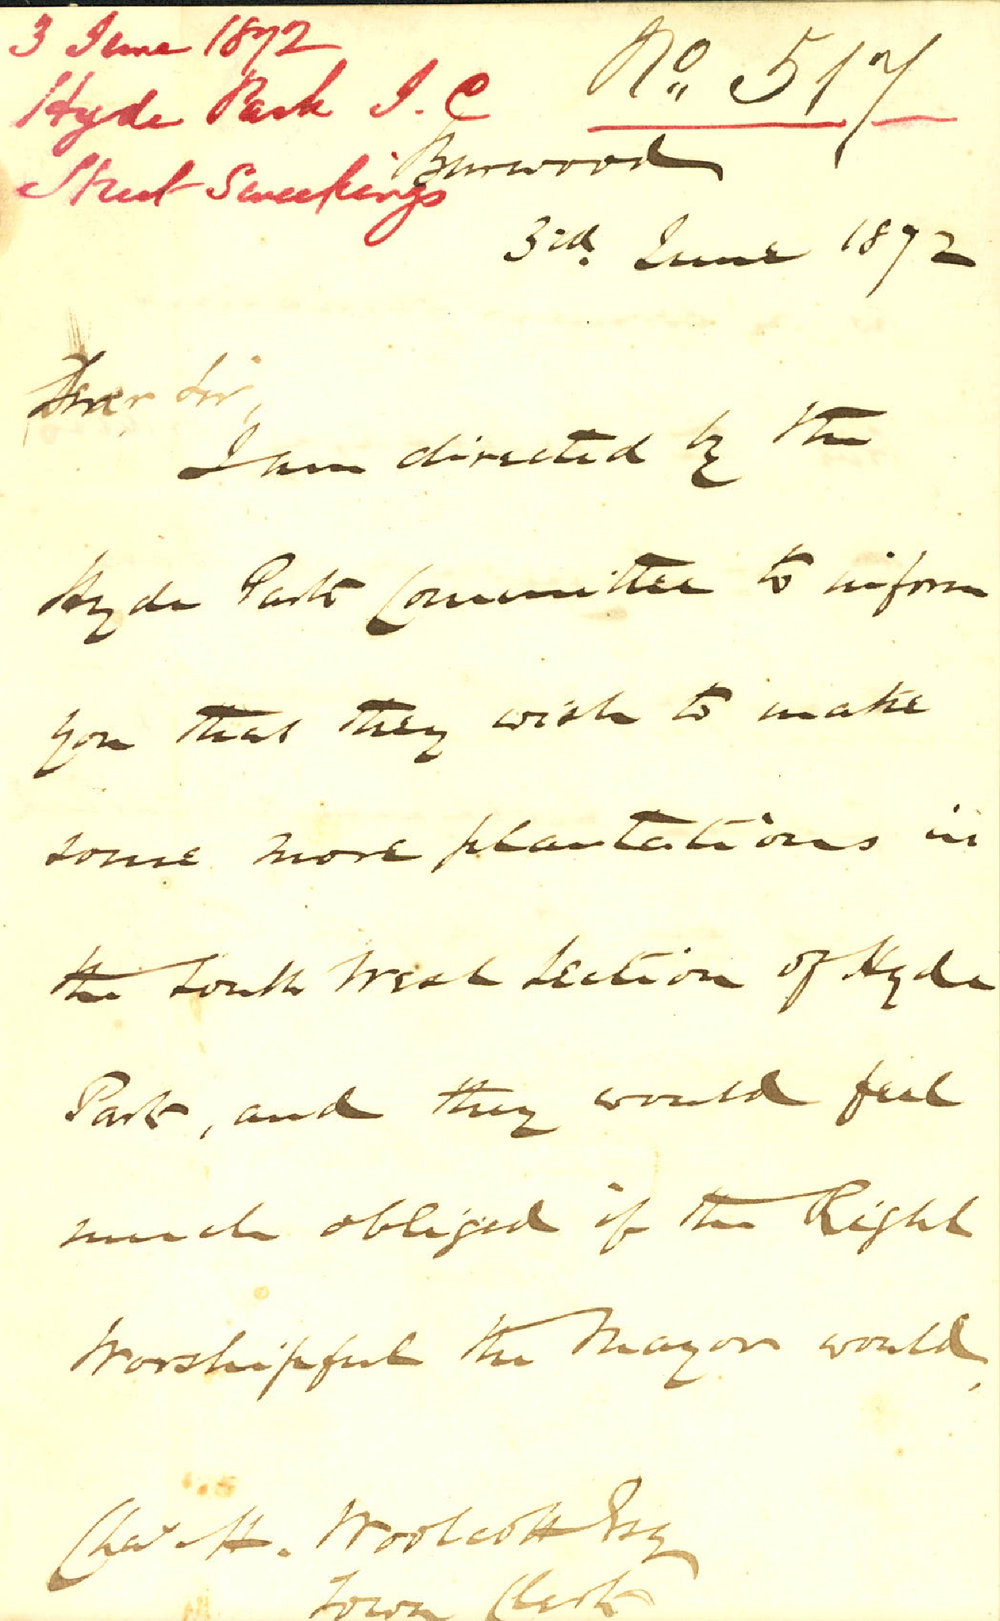 3 June 1872
Hyde Park I. C
Street Sweepings
No. 517
Burwood
3rd. June 1872
Dear Sir,
I am directed by the
Hyde Park Committee to inform
you that they wish to make
some more plantations in
the South West Section of Hyde
Park, and they would feel
much obliged if the Right
Worshipful the Mayor would,
Chas. H. Woolcott Esq
Town Clerk